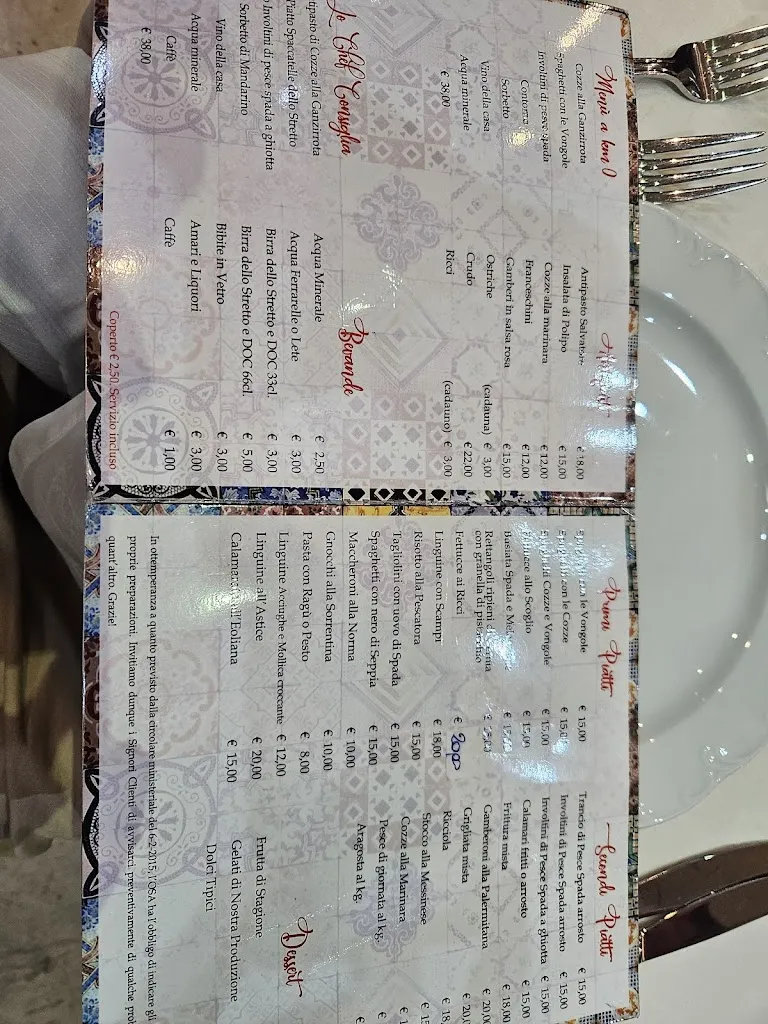 Menù a km 0
Cozze alla Ganzirrota
Spaghetti con le Vongole
Involtini di pesce spada
Contorno
Sorbetto
Vino della casa
Acqua minerale
€ 38,00
Lo Chef Consiglia
tipasto di Cozze alla Ganzirrota
Piatto Spaccatelle dello Stretto
o Involtini di pesce spada a ghiotta
Sorbetto di Mandarino
Vino della casa
Acqua minerale
Caffè
€ 38,00
Antipasto Salvatore € 18,00
Insalata di Polipo € 15,00
Cozze alla marinara € 12,00
Franceschini € 12,00
Gamberi in salsa rosa € 15,00
Ostriche (cadauna) € 3,00
Crudo € 22,00
Ricci (cadauno) € 3,00
Bevande
Acqua Minerale € 2,50
Acqua Ferrarelle o Lete € 3,00
Birra dello Stretto e DOC 33cl. € 3,00
Birra dello Stretto e DOC 66cl. € 5,00
Bibite in Vetro € 3,00
Amari e Liquori € 3,00
Caffè € 1,00
Coperto € 2,50. Servizio incluso
Primi Piatti
Spaghetti con le Vongole € 15,00
con le Cozze € 15,00
Cozze e Vongole € 15,00
allo Scoglio € 15,00
Busiata Spada e € 15,00
Rettangoli ripieni
con granella di pistacchio
Fettucce ai Ricci € 20,00
Linguine con Scampi € 18,00
Risotto alla Pescatora € 15,00
Tagliolini con uovo di Spada € 15,00
Spaghetti con nero di Seppia € 15,00
Maccheroni alla Norma € 10,00
Gnocchi alla Sorrentina € 10,00
Pasta con Ragù o Pesto € 8,00
Linguine Acciughe e Mollica croccante € 12,00
Linguine all'Astice € 20,00
Calamarata all'Eoliana € 15,00
Secondi Piatti
Trancio di Pesce Spada arrosto € 15,00
Involtini di Pesce Spada arrosto € 15,00
Involtini di Pesce Spada a ghiotta € 15,00
Calamari fritti o arrosto € 15,00
Frittura mista € 18,00
Gamberoni alla Palermitana € 20,0
Grigliata mista € 20,0
Ricciola € 18,
Stocco alla Messinese € 15
Cozze alla Marinara € 1
Pesce di giornata al kg. €
Aragosta al kg. €
Dessert
Frutta di Stagione
Gelati di Nostra Produzione
Dolci Tipici
In ottemperanza a quanto previsto dalla circolare ministeriale del 6-2-2015, l'OSA ha l'obbligo di indicare gli
proprie preparazioni. Invitiamo dunque i Signori Clienti di avvisarci preventivamente di qualche pro
quant'altro. Grazie!